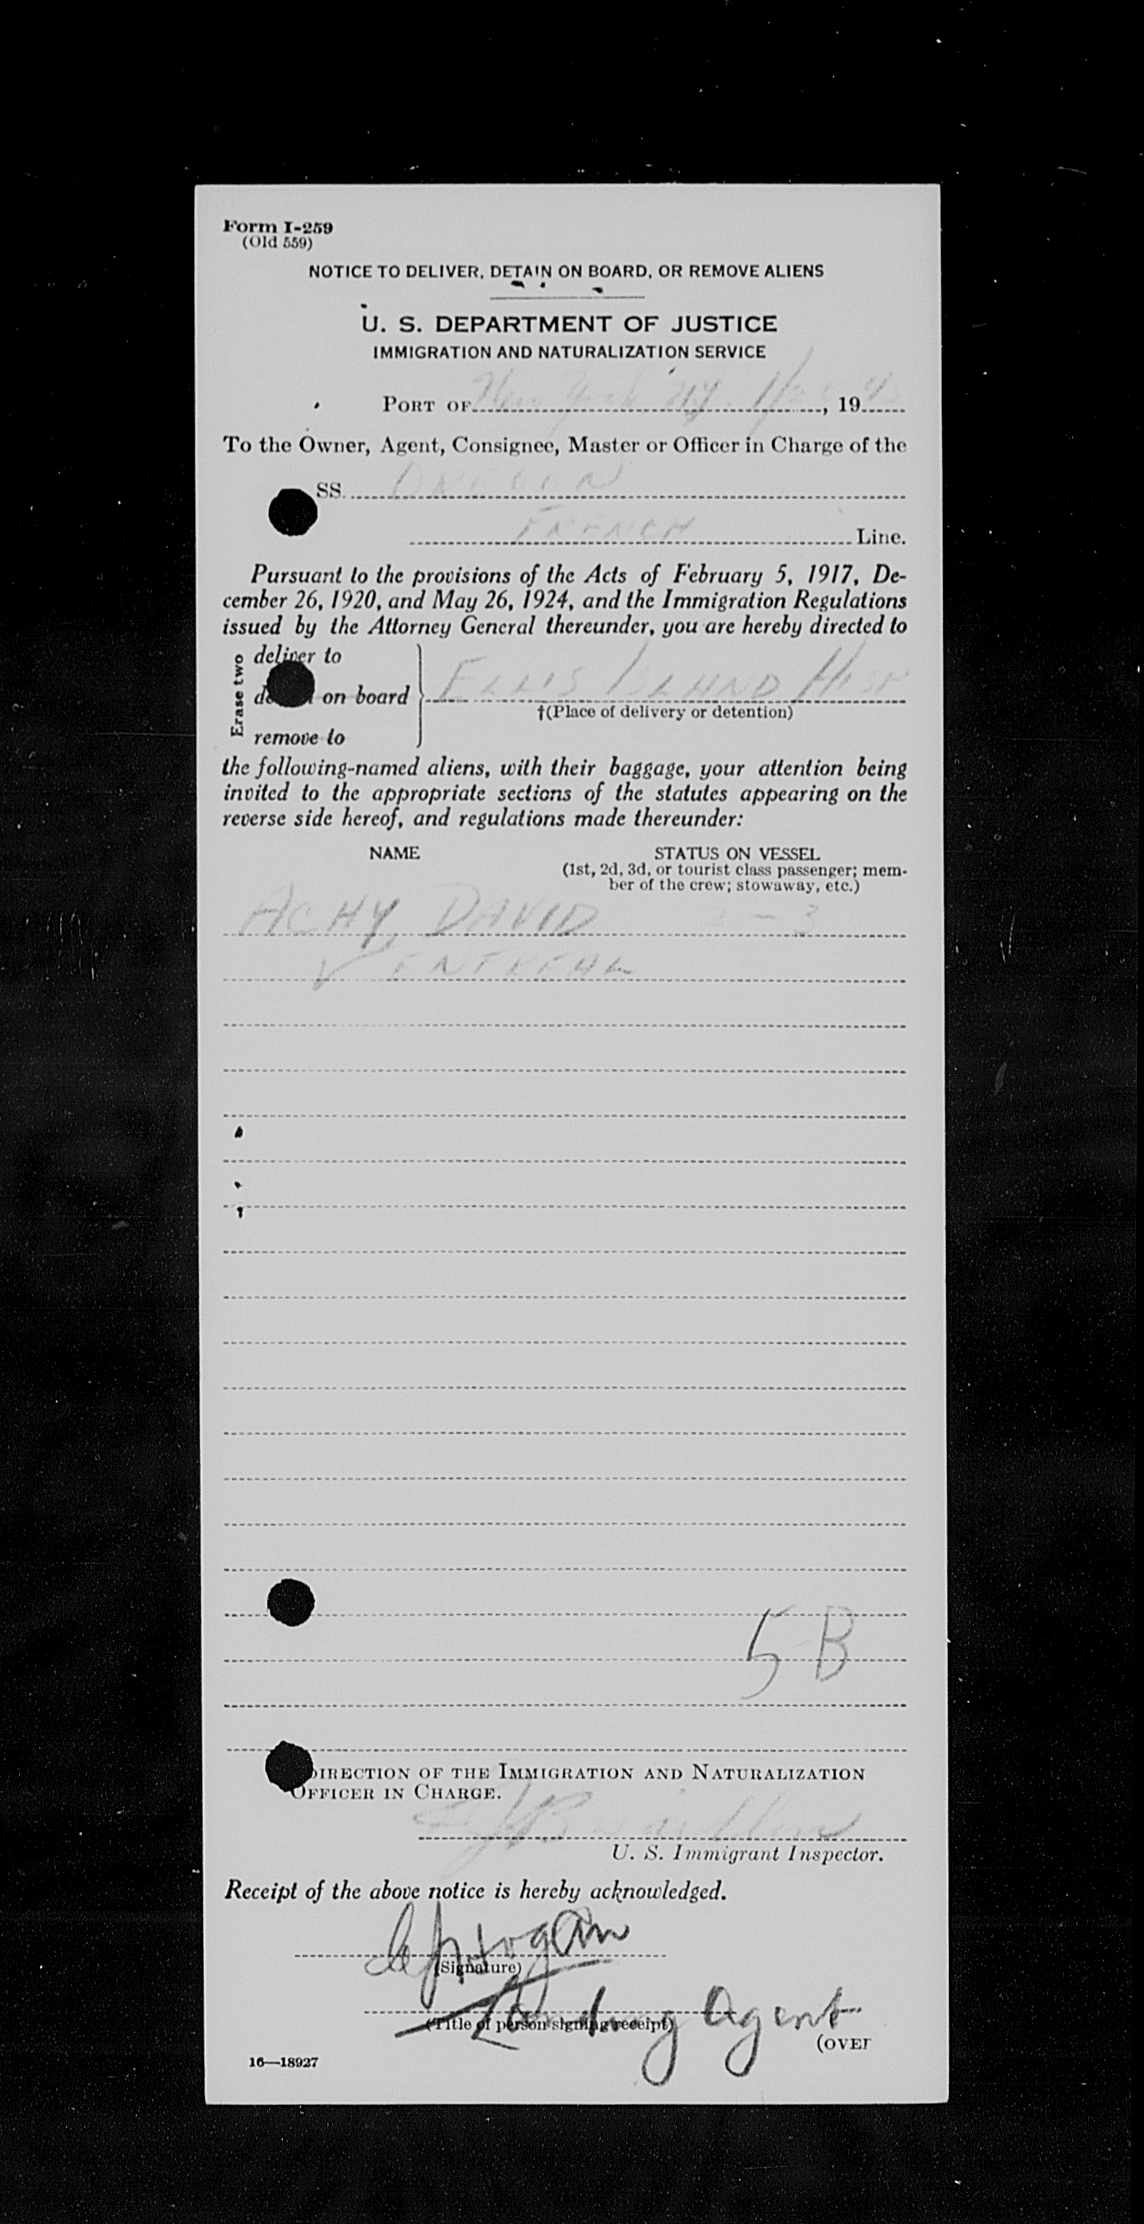 Form I-259
(Old 559)
NOTICE TO DELIVER, DETAIN ON BOARD, OR REMOVE ALIENS
U. S. DEPARTMENT OF JUSTICE
IMMIGRATION AND NATURALIZATION SERVICE
PORT OF New York NY. , 19
To the Owner, Agent, Consignee, Master or Officer in Charge of the
SS. OREGON
FRENCH Line.
Pursuant to the provisions of the Acts of February 5, 1917, De-
cember 26, 1920, and May 26, 1924, and the Immigration Regulations
issued by the Attorney General thereunder, you are hereby directed to
Erase two
deliver to
on board ELLIS ISLAND HOSP
†(Place of delivery or detention)
remove to
the following-named aliens, with their baggage, your attention being
invited to the appropriate sections of the statutes appearing on the
reverse side hereof, and regulations made thereunder:
NAME STATUS ON VESSEL
(1st, 2d, 3d, or tourist class passenger; mem-
ber of the crew; stowaway, etc.)
ACHY, DAVID - 3
5 B
DIRECTION OF THE IMMIGRATION AND NATURALIZATION
OFFICER IN CHARGE.
U. S. Immigrant Inspector.
Receipt of the above notice is hereby acknowledged.
(Signature)
Landing Agent
(Title of person signing receipt)
(OVER
16—18927